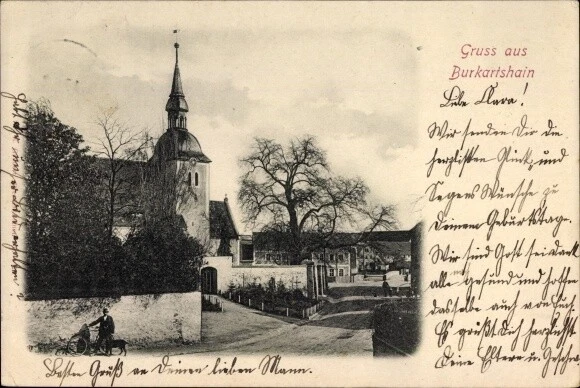 Gruss aus
Burkartshain
Liebe Clara!
Wir senden Dir die
herzlichsten Glück- und
Segens Wünsche zu
Deinem Geburtstage.
Wir sind Gott sei dank
alle gesund und hoffen
dasselbe auch von Euch.
Es grüßt Dich herzlichst
Deine Eltern u. Geschw.
Besten Gruß an Deinen lieben Mann.